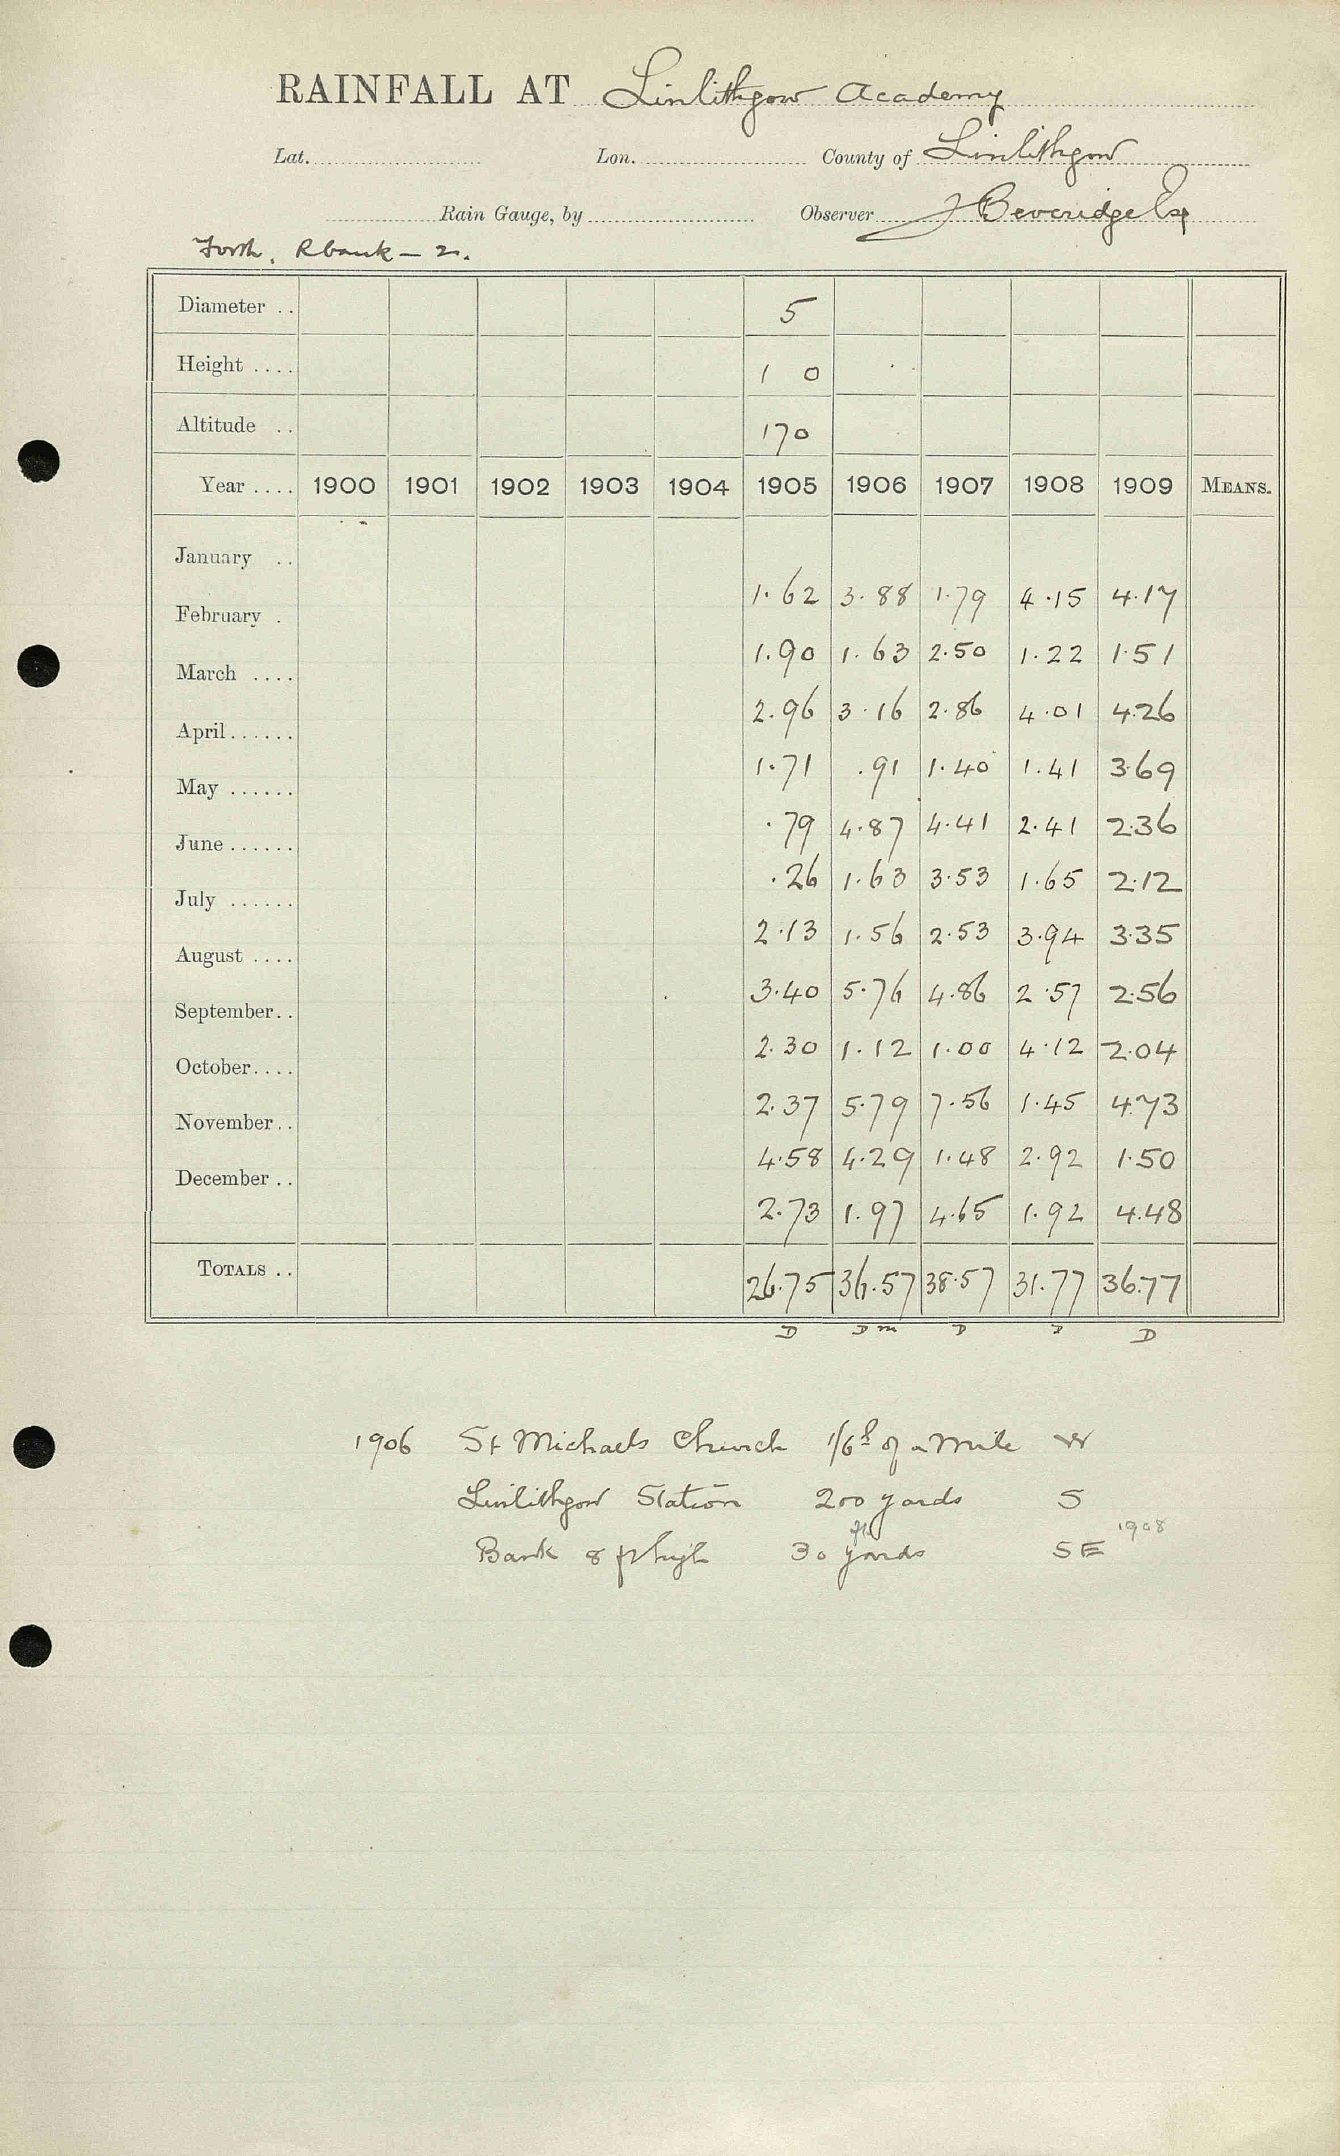 RAINFALL AT Linlithgow Academy
Lat. Lon. County of Linlithgow
Rain Gauge, by Observer J Beveridge Esq
Forth, R bank — 2.
Diameter . . 5
Height . . . . 1 0
Altitude . . 170
Year . . . . 1900 1901 1902 1903 1904 1905 1906 1907 1908 1909 MEANS.
January . . 1.62 3.88 1.79 4.15 4.17
February . 1.90 1.63 2.50 1.22 1.51
March . . . . 2.96 3.16 2.86 4.01 4.26
April . . . . . . 1.71 .91 1.40 1.41 3.69
May . . . . . . .79 4.87 4.41 2.41 2.36
June . . . . . . .26 1.63 3.53 1.65 2.12
July . . . . . . 2.13 1.56 2.53 3.94 3.35
August . . . . 3.40 5.76 4.86 2.57 2.56
September . . 2.30 1.12 1.00 4.12 2.04
October . . . . 2.37 5.79 7.56 1.45 4.73
November . . 4.58 4.29 1.48 2.92 1.50
December . . 2.73 1.97 4.65 1.92 4.48
TOTALS . . 26.75 36.57 38.57 31.77 36.77
D D m D D D
1906 St Michaels Church 1/6th of a Mile W
Linlithgow Station 200 yards S
ft 1908
Bank 8 ft high 30 yards SE